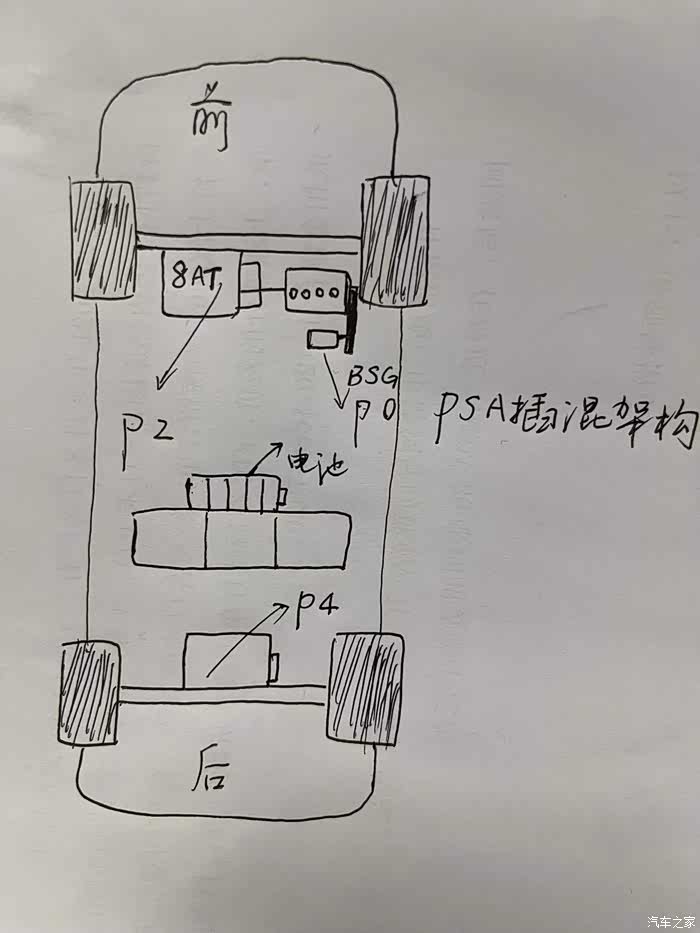 前
8AT
BSG
P0
P2
PSA插混架构
电池
P4
后
汽车之家